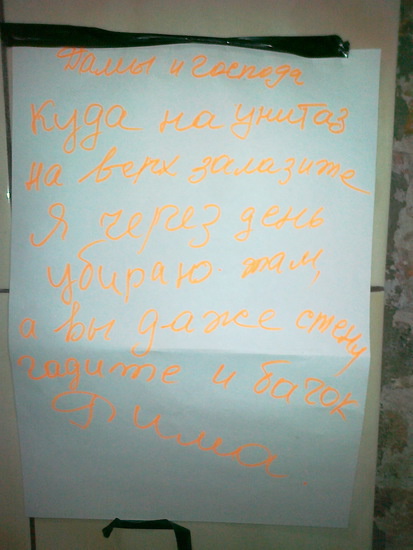 Дамы и господа
куда на унитаз
на верх залазите
Я через день
убираю там,
а вы даже стену
гадите и бачок
Фима.